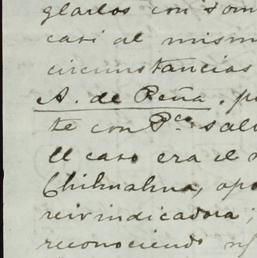 glarlos con som
casi al mism
circunstancias
A. de Peña, p
te con Pco. sal
el caso era el
Chihuahua, apo
reivindicadora;
reconociendo